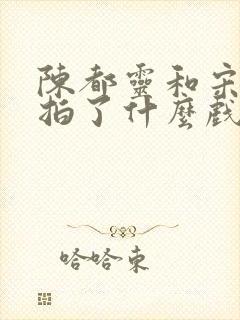 陳都靈和宋
拍了什麼戲
哈哈東